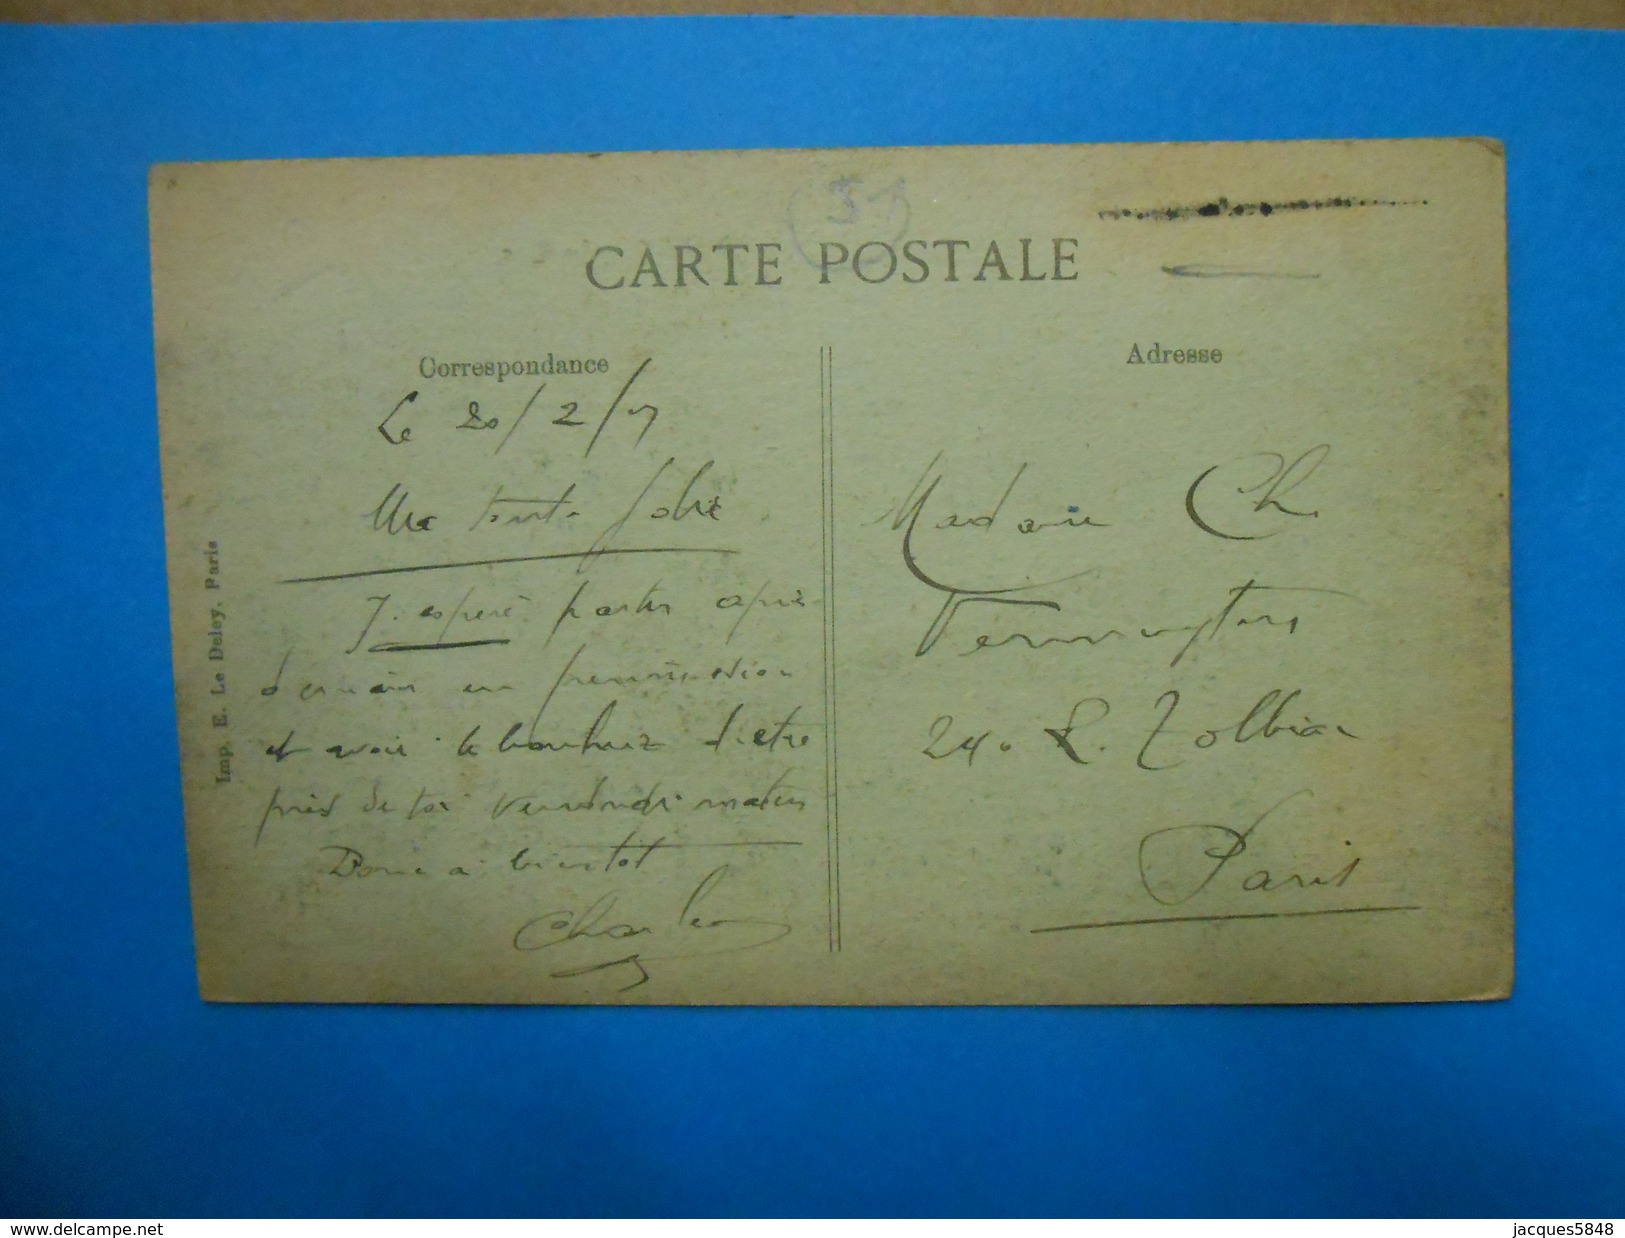 51
CARTE POSTALE
Correspondance
Adresse
Le 20/2/17
Ma toute Jolie
J'espère partir après
demain en permission
et avoir le bonheur d'être
près de toi vendredi matin
Donc à bientôt
Charles
Madame Ch.
24. R. Tolbiac
Paris
Imp. E. Le Deley, Paris
www.delcampe.net
jacques5848